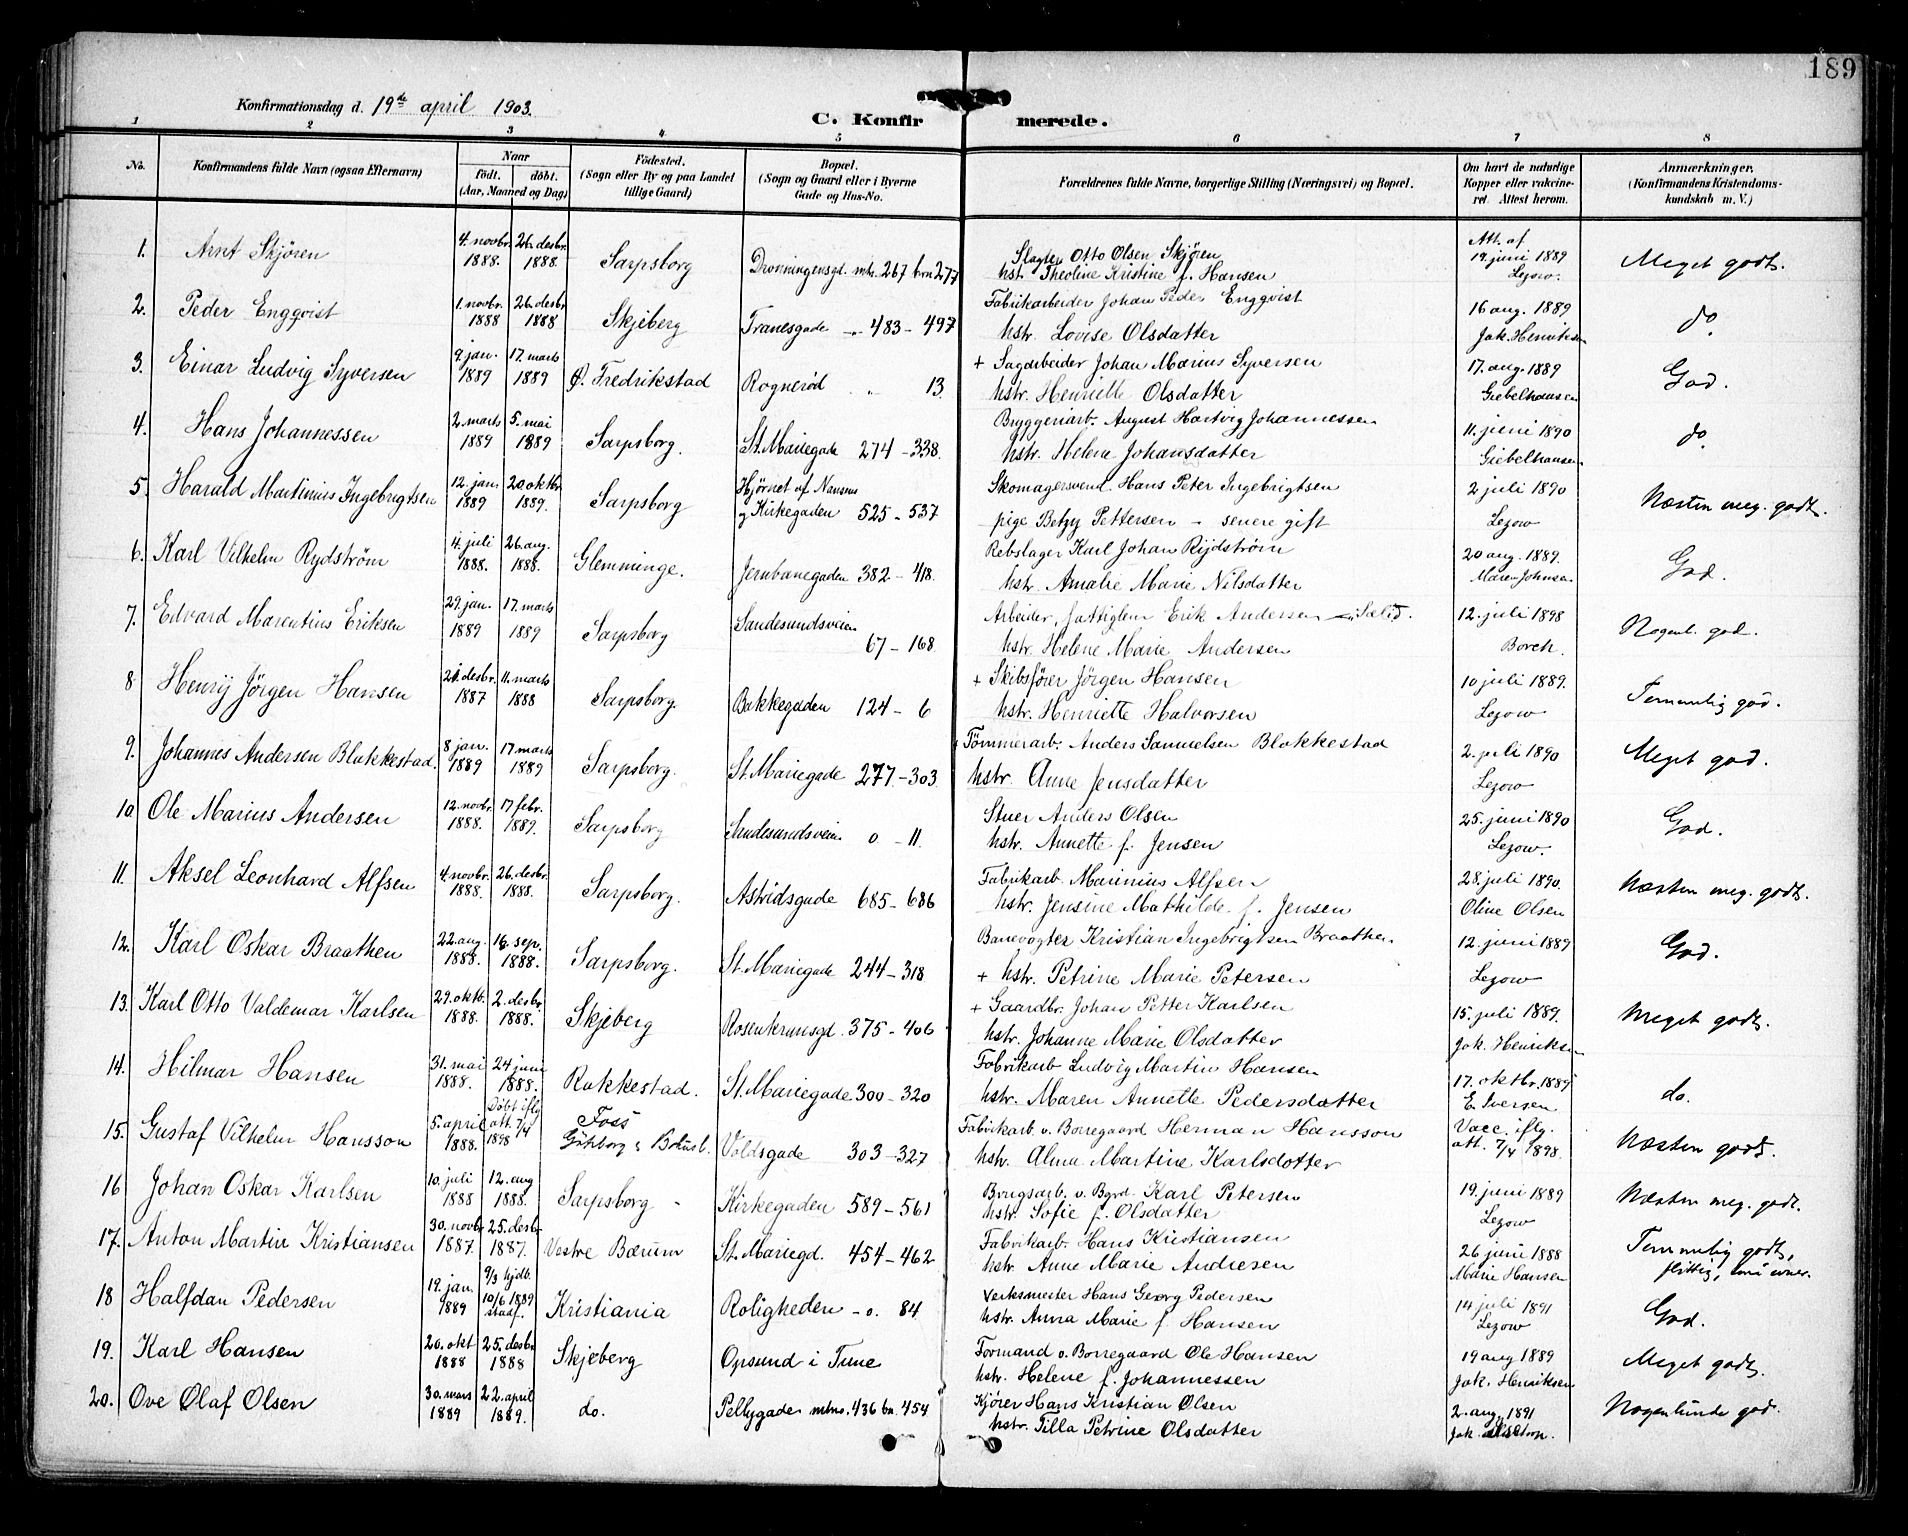 189
Konfirmationsdag d. 19de april 1903.
C. Konfirmerede.
1 2 3 4 5 6 7 8
No. Konfirmandens fulde Navn (ogsaa Efternavn) Naar födt. döbt. (Aar, Maaned og Dag) Födested. (Sogn eller By og paa Landet tillige Gaard) Bopæl. (Sogn og Gaard eller i Byerne Gade og Hus-No. Forældrenes fulde Navne, borgerlige Stilling (Næringsvei) og Bopæl. Om havt de naturlige Kopper eller vakcineret. Attest herom. Anmærkninger. (Konfirmandens Kristendomskundskab m. V.)
1. Arnt Skjören 4. novbr. 1888. 26. desbr. 1888. Sarpsborg Dronningensgd. mtr. 267 brn 277 Slagter Otto Olsen Skjören
hst. Theoline Kristine f. Hansen Att. af 19. juni 1889 Lezow. Meget godt.
2. Peder Engqvist 1. novbr. 1888 26. desbr. 1888 Skjeberg Tranesgade „ 483 - 497 Fabrikarbeider Johan Peder Engqvist
hstr. Lovise Olsdatter 16 aug. 1889 Jak. Henriksen do
3. Einar Ludvig Syversen 9. jan. 1889 17. marts 1889 Ø. Fredrikstad Rognerød „ 13. + Sagarbeider Johan Marius Syversen
hstr. Henriette Olsdatter 17. aug. 1889 Giebelhausen God.
4. Hans Johannessen 2. marts 1889 5. mai 1889 Sarpsborg. St. Mariegade 274 - 338. Bryggeriarb. August Hartvig Johannessen
hstr. Helene Johansdatter 11. juni 1890 Giebelhausen do
5. Harald Martinius Ingebrigtsen 12. jan. 1889 20 oktbr. 1889. Sarpsborg Hjørnet af Nansens og Kirkegaden 525 - 537 Skomagersvend. Hans Peter Ingebrigtsen
pige Betzy Pettersen - senere gift 2 juli 1890 Lezow Næsten meg. godt.
6. Karl Vilhelm Rydström 4. juli 1888. 26. aug. 1888. Glemminge. Jernbanegaden 382 - 418. Rebslager Karl Johan Rydström
hst. Amalie Marie Nilsdatter 20 aug. 1889. Maren Johnsen God.
7. Edvard Marentius Eriksen 29. jan. 1889 17. marts 1889 Sarpsborg Sandesundsveien 67 - 168 Arbeider, fattiglem Erik Andersen
hstr. Helene Marie Andersen 12. juli 1898 Borch. Nogenl. god.
8 Henrij Jörgen Hansen 21. desbr. 1887 11. marts 1888 Sarpsborg. Bakkegaden 124 - 6 + Skibsfører Jörgen Hansen
hstr. Henriette Halvorsen 10 juli 1889. Lezow Temmelig god.
9. Johannes Andersen Blakkestad. 8 jan. 1889 17 marts 1889 Sarpsborg. St. Mariegade 277 - 303 + Tömmerarb. Anders Samuelsen Blakkestad
hstr. Anne Jensdatter 2. juli 1890 Lezow Meget god.
10. Ole Marius Andersen 12. novbr. 1888. 17 febr. 1889. Sarpsborg Sandesundsveien o - 11. Stuer Anders Olsen
hstr. Annette f. Jensen 25. juni 1890 Lezow. God.
11. Aksel Leonhard Alfsen 4. novbr. 1888. 26. desbr. 1888. Sarpsborg. Astridsgade 685 - 686 Fabrikarb. Marinius Alfsen
hstr. Jensine Mathilde f. Jensen 28. juli 1890. Oline Olsen Næsten meg. godt.
12. Karl Oskar Braathen 22. aug. 1888. 16. sep. 1888. Sarpsborg. St. Mariegade 244 - 318 Banevogter Kristian Ingebrigtsen Braathen
+ hstr. Petrine Marie Petersen 12. juni 1889 Lezow God.
13. Karl Otto Valdemar Karlsen 29. oktb. 1888. 2. desbr. 1888. Skjeberg Rosenkransgd. 375 - 406 + Gaardbr. Johan Petter Karlsen
hstr. Johanne Marie Olsdatter 15. juli 1889. Jak. Henriksen Meget godt.
14. Hilmar Hansen 31. mai 1888. 24 juni 1888. Rakkestad. St. Mariegade 300 - 320 Fabrikarb Ludvig Martin Hansen
hstr. Maren Annette Pedersdatter 17. oktbr. 1889 E. Iversen do.
15. Gustaf Vilhelm Hansson 5. april 1888. Döbt iflg att. 7/4 1898 Foss Götebog & Bohusl. Voldsgade 303 - 327 Fabrikarb. v. Borregaard Herman Hansson
hstr. Alma Martine Karlsdotter Vacc. iflg. att. 7/4 1898. Næsten godt.
16 Johan Oskar Karlsen 10. juli 1888 12. aug 1888. Sarpsborg - Kirkegaden 589 - 561 Brugsarb. v. Bgrd. Karl Petersen
hstr. Sofie f. Olsdatter 19. juni 1889 Lezow Næsten meg. godt.
17. Anton Martin Kristiansen 30. novbr 1887. 25. desbr 1887. Vestre Bærum St. Mariegd. 454 - 462 Fabrikarb. Hans Kristiansen
hstr. Anne Marie Andresen 26 juni 1888 Marie Hansen Temmelig godt, flittig, små evner.
18 Halfdan Pedersen 19. jan. 1889 9/3 hjdb. 10/6 1889 stadf. Kristiania Roligheden - o. 84 Verksmester Hans Georg Pedersen
hstr. Anna Marie f. Hansen 14 juli 1891 Lezow God.
19. Karl Hansen 20. okt 1888 25. desbr 1888 Skjeberg Opsund i Tune Formand v. Borregaard Ole Hansen
hstr. Helene f. Johannessen 19 aug 1889 Jak. Henriksen Meget godt.
20. Ove Olaf Olsen 30. mars 1889 22. april 1889. do. Pellygade mtno. 436 bn. 454 Kjörer Hans Kristian Olsen
hstr. Tilla Petrine Olsdatter 2. aug. 1891 Jak. Nogenlunde god.